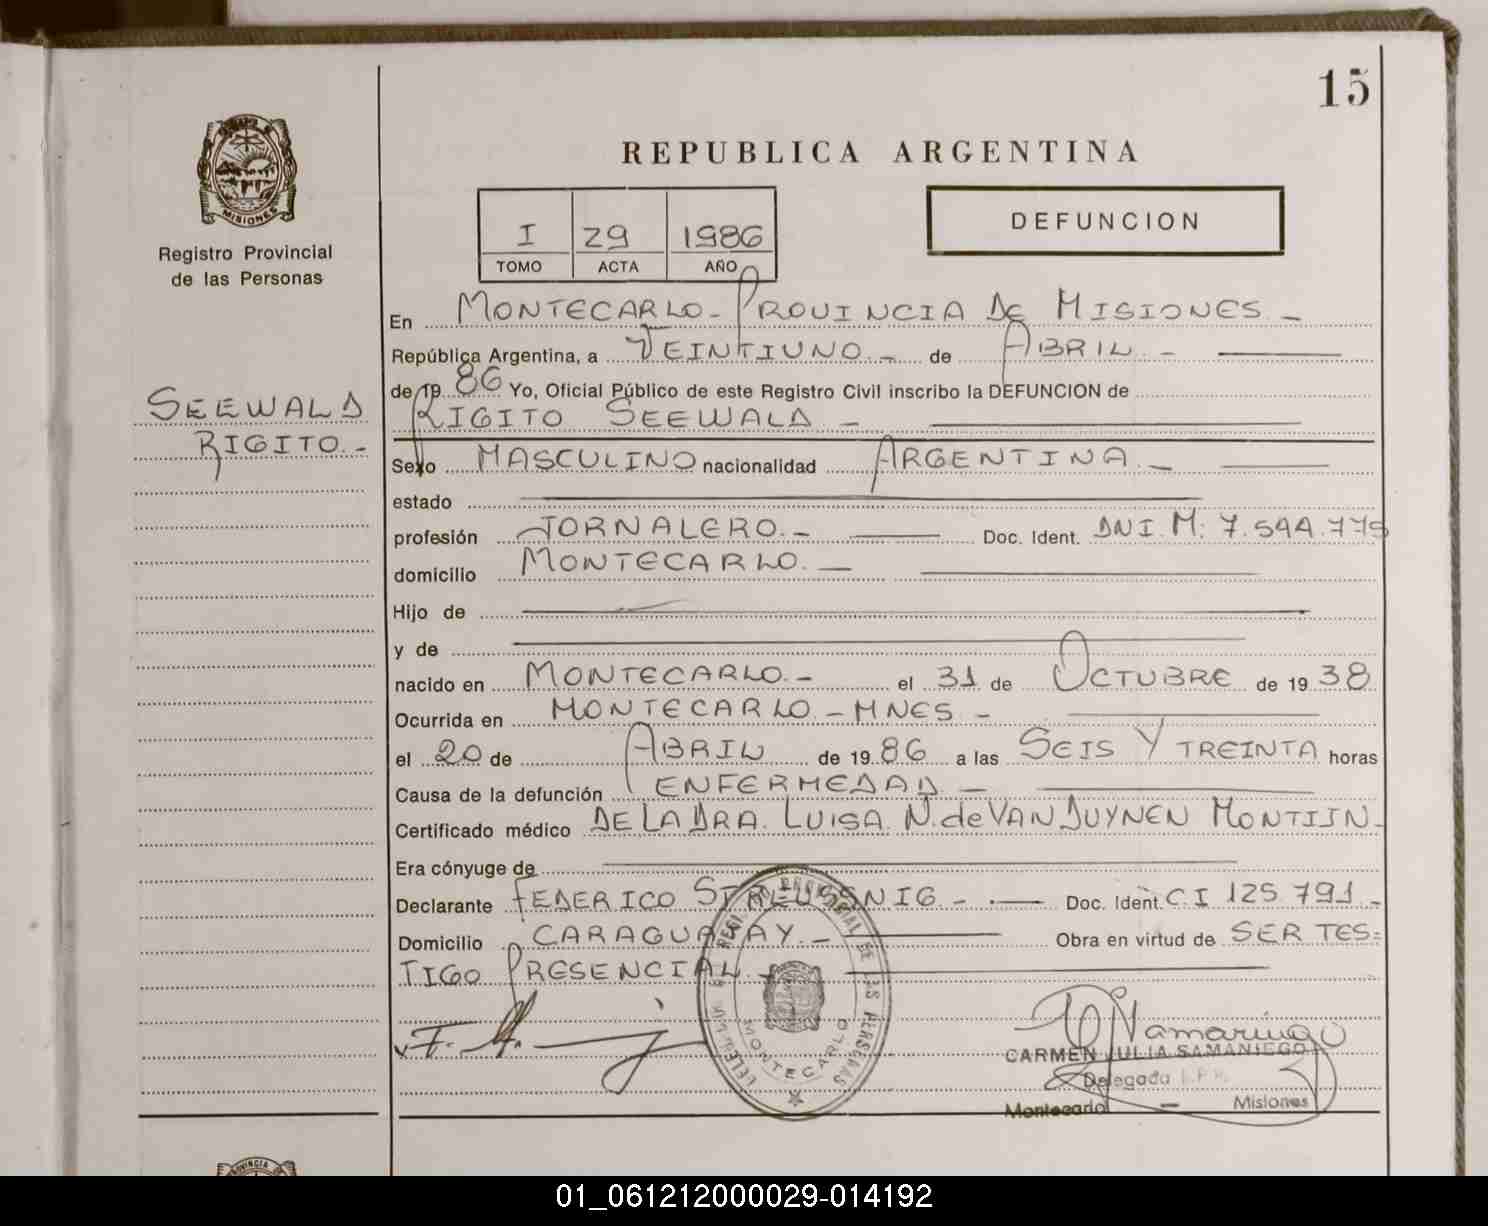 15
REPUBLICA ARGENTINA
MISIONES
Registro Provincial
de las Personas
I 29 1986
TOMO ACTA AÑO
DEFUNCION
SEEWALD
RIGITO.-
En MONTECARLO - PROVINCIA DE MISIONES -
República Argentina, a VEINTIUNO.- de ABRIL -
de 19 86 Yo, Oficial Público de este Registro Civil inscribo la DEFUNCION de
RIGITO SEEWALD -
Sexo MASCULINO nacionalidad ARGENTINA.-
estado
profesión JORNALERO.- Doc. Ident. DNI. M: 7.594.775
domicilio MONTECARLO.-
Hijo de
y de
nacido en MONTECARLO.- el 31 de OCTUBRE de 19 38
Ocurrida en MONTECARLO - MNES -
el 20 de ABRIL de 19 86 a las SEIS Y TREINTA horas
Causa de la defunción ENFERMEDAD -
Certificado médico DE LA DRA. LUISA N. de VAN DUYNEN MONTIJN-
Era cónyuge de
Declarante FEDERICO STREUSSNIG - Doc. Ident. C.I 125.791 -
Domicilio CARAGUATAY.- Obra en virtud de SER TES=
TIGO PRESENCIAL.-
MONTECARLO
CARMEN JULIA SAMANIEGO
Delegada
Montecarlo - Misiones
01_061212000029-014192